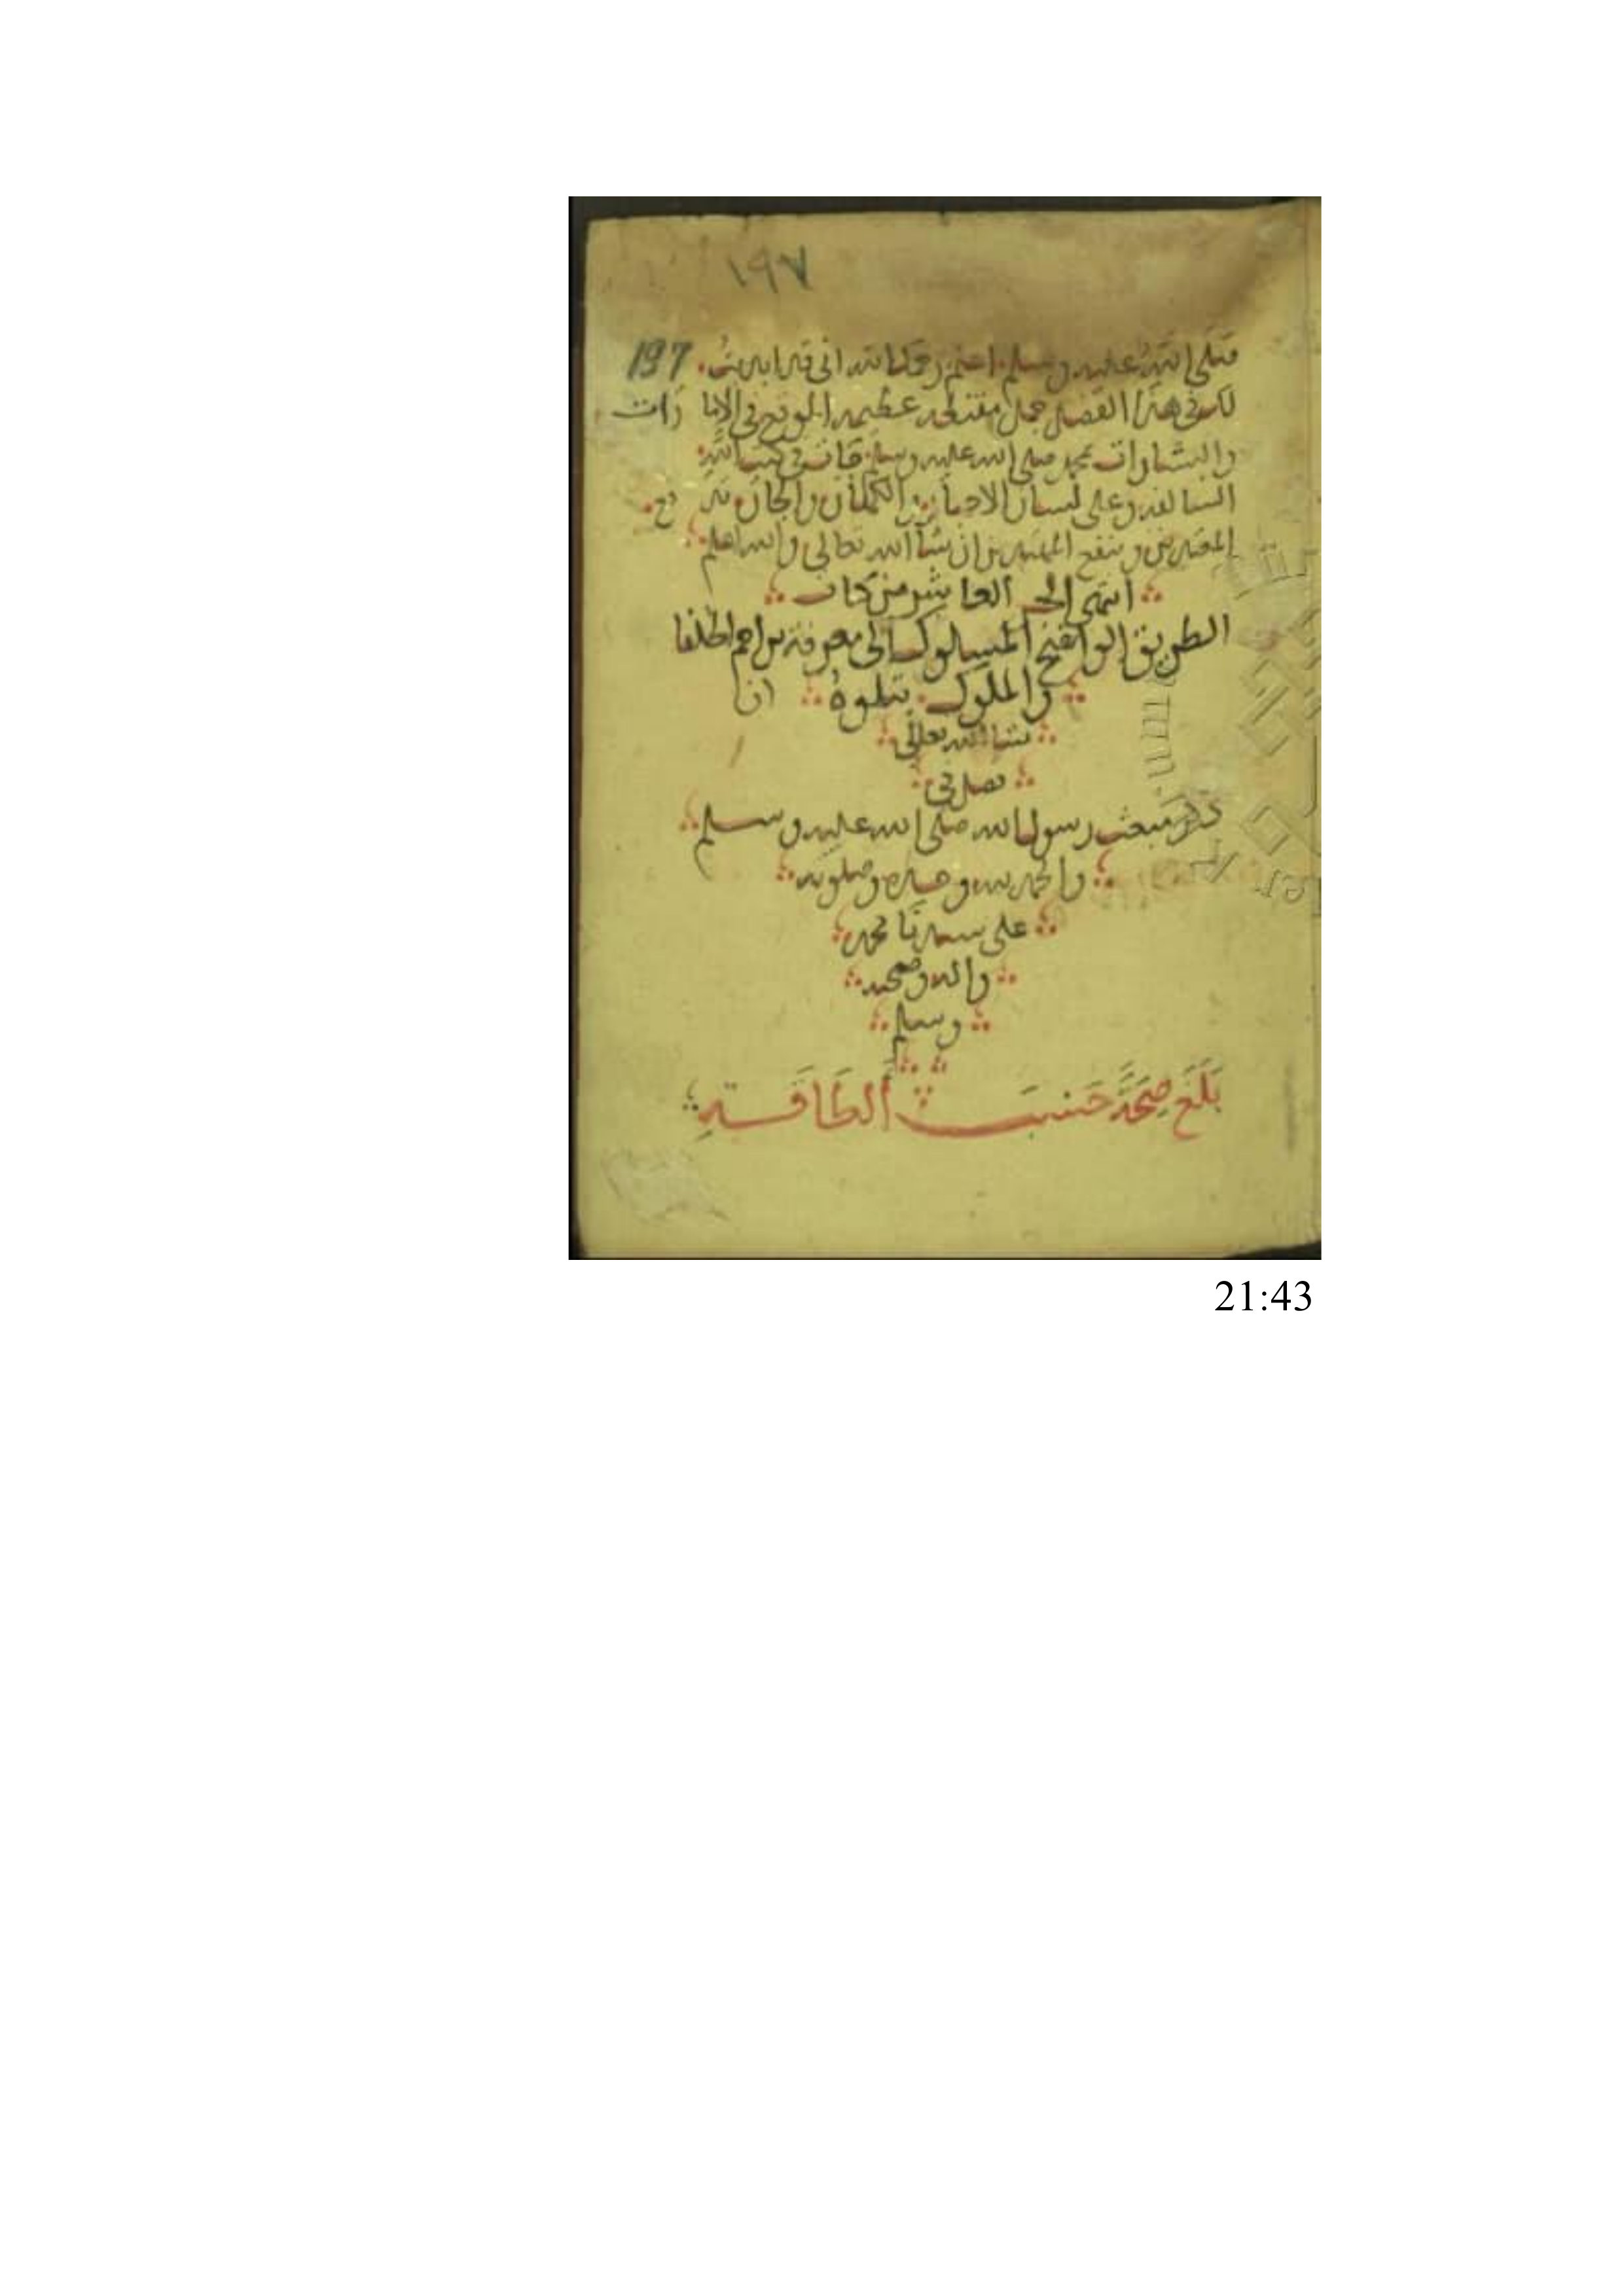 ١٩٧
197
صلى الله عليه وسلم اعلم رحمك الله اني قد ابديت
لك في هذا الفصل جمل مقتطفه عظيمه الموقع في الاشارات
والبشارات بمحمد صلى الله عليه وسلم في كتب الله
السالفه وعلى لسان الاحبار والكهان والجان
وينفع المهتدين ان شاء الله تعالى والله اعلم
انتهى الجز العاشر من كتاب
الطريق الواضح المسلوك الى معرفة تراجم الخلفا
والملوك يتلوه ان
شا الله تعالى
فصل في
ذكر مبعث رسول الله صلى الله عليه وسلم
والحمد لله وحده وصلوته
على سيدنا محمد
واله وصحبه
وسلم
بَلَغَ صِحَّةً حَسَبَ الطَاقَةِ
21:43